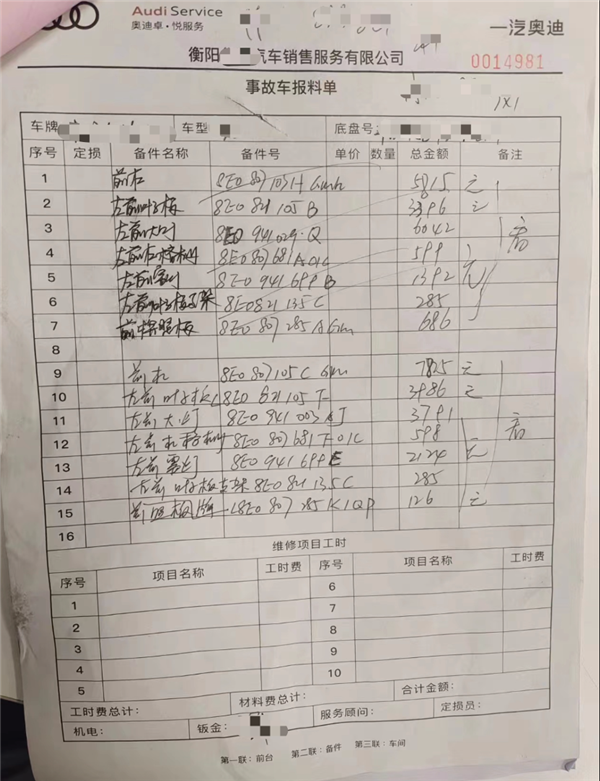 Audi Service
奥迪卓·悦服务
一汽奥迪
衡阳 汽车销售服务有限公司
0014981
事故车报料单
车牌 车型 底盘号
序号 定损 备件名称 备件号 单价 数量 总金额 备注
1 前杠 8E0 807 103H Gmh 5815 元
2 左前叶子板 8E0 821 105 B 3396 元
3 左前大灯 8E0 941 029·Q 6042
4 左前杠格栅 8E0 807 681 A 01C 599
5 左前雾灯 8E0 941 699 B 1392 元
6 左前叶子板支架 8E0821 135C 285
7 前牌照板 8E0 807 285 A Gm 686
8
9 前杠 8E0 807 105 C Gm 7825 元
10 左前叶子板 8E0 821 105 F 3986 元
11 左前大灯 8E0 941 003 AJ 3791
12 左前杠格栅 8E0 807 681 F 01C 598
13 左前雾灯 8E0 941 699 E 2124 元
14 左前叶子板支架 8E0 821 135C 285
15 8E0 807 285 K 1QP 126 元
16
维修项目工时
序号 项目名称 工时费 序号 项目名称 工时费
1 6
2 7
3 8
4 9
5 10
工时费总计： 材料费总计： 合计金额：
机电： 钣金： 服务顾问： 定损员：
第一联：前台 第二联：备件 第三联：车间